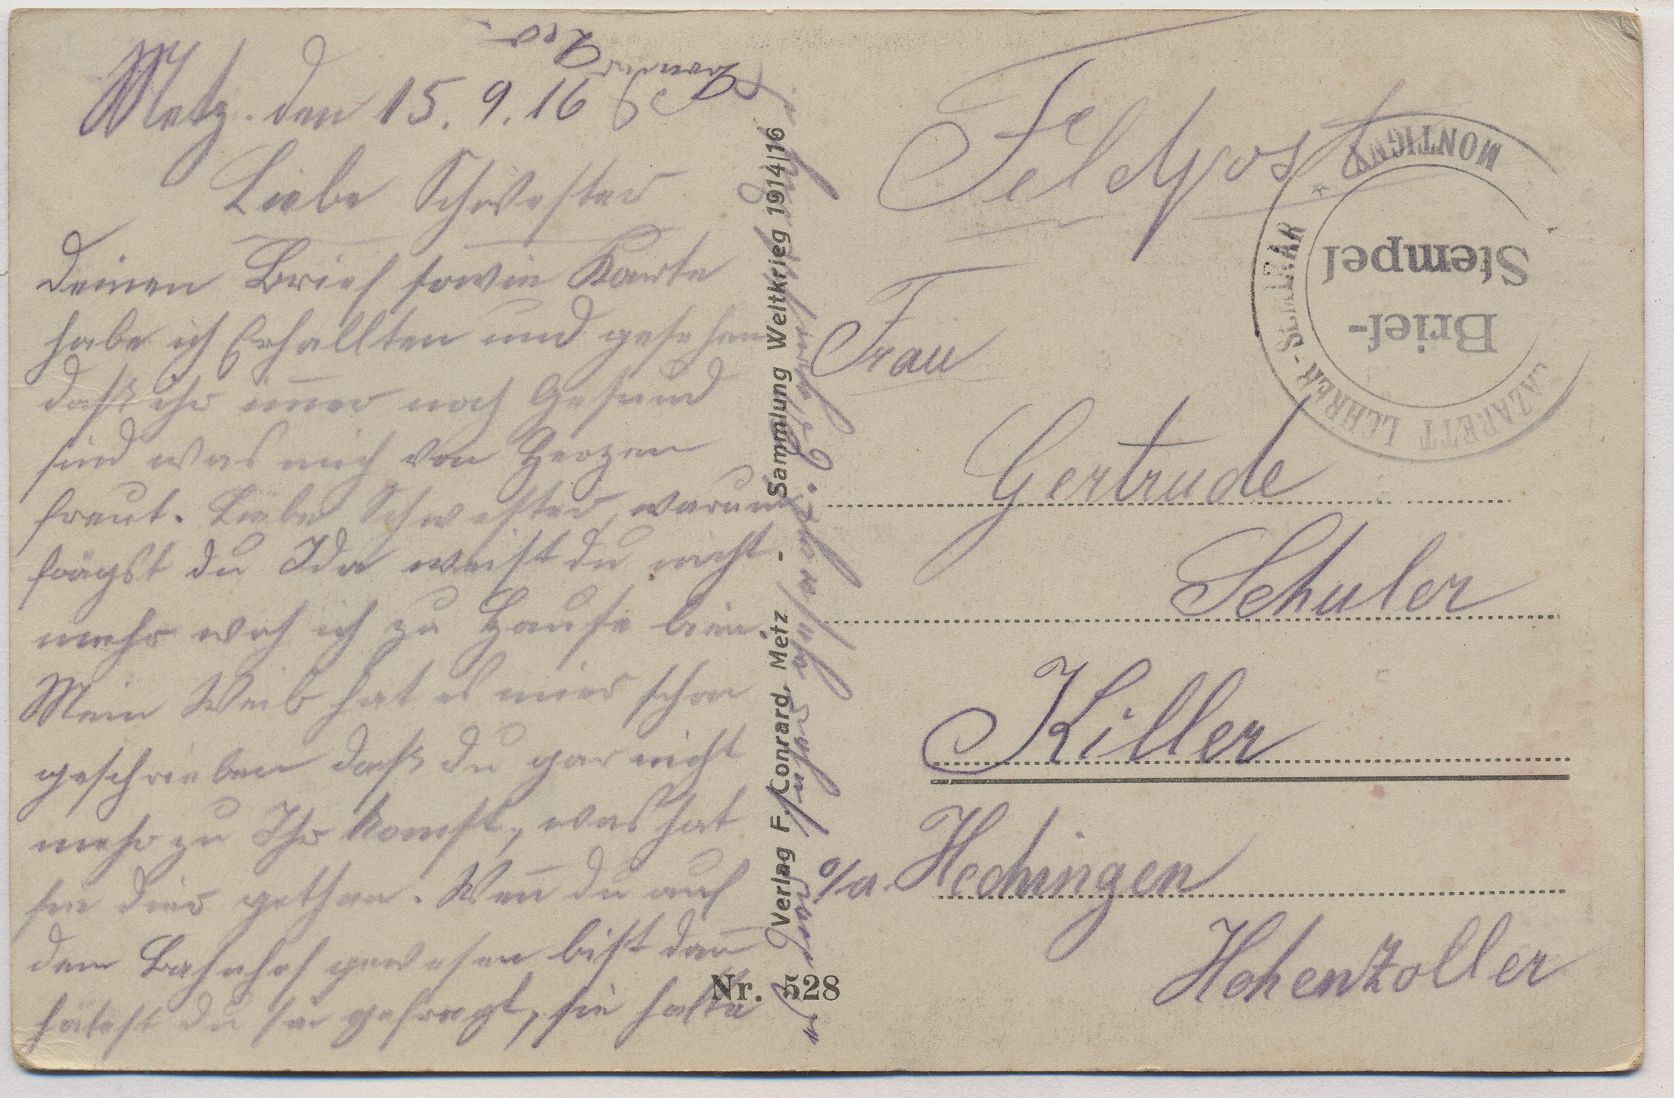 Metz. den 15.9.16
Liebe Schwester
Deinen Brief sowie Karte
habe ich Erhallten und gesehen
daß ihr imer noch Gesund
sind was mich von Herzen
freut. Liebe Schwester, warum
frägst du Ida weist du nicht
mehr woh ich zu Hause bin.
Mein Weib hat es mier schon
geschrieben daß du gar nicht
mehr zu Ihr komst, was hat
sie dier gethan. Wen du auf
dem Bahnhof gewesen bist dan
hätest du sie gefragt, sie hatte
Verlag F. Conrard, Metz - Sammlung Weltkrieg 1914/16
Nr. 528
Feldpost
MONTIGNY * LAZARETT LEHRER-SEMINAR
Brief-
Stempel
Frau
Gertrude
Schuler
Killer
o/a. Hechingen
Hohenzoller